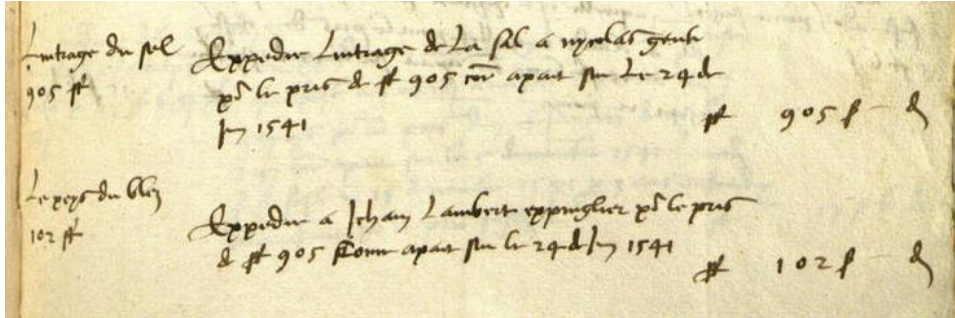 Lintrage du sel
905 ff
Expedie Lintrage de La sal a nycolas gente
po le pris de ff 905 com apart sur Le 24 de
Jun 1541
ff 905 s d
Le poys du blez
102 ff
Expedie a Jehan Lambert exppinglier po le pris
de ff 905 comm apart sur le 24 de Jun 1541
ff 102 s d